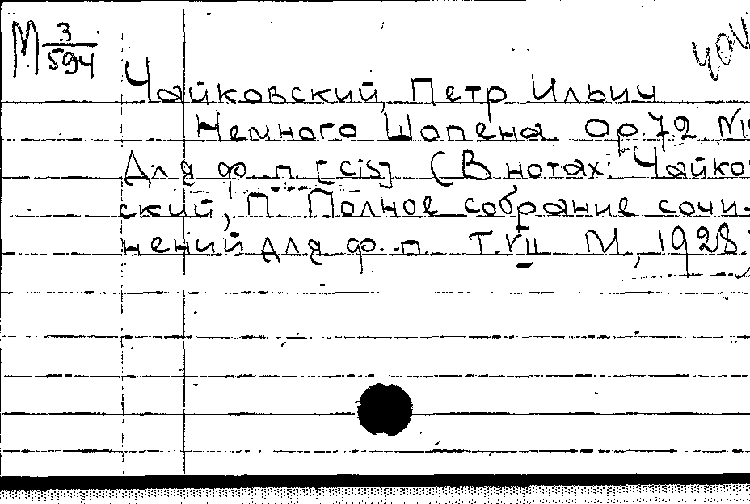 М 3/594
Чайковский, Петр Ильич
Немного Шопена Op.72
Для ф.-п. [cis] (В нотах: Чайко
ский, П. Полное собрание сочи-
нений для ф.-п. Т.VII М., 1928.